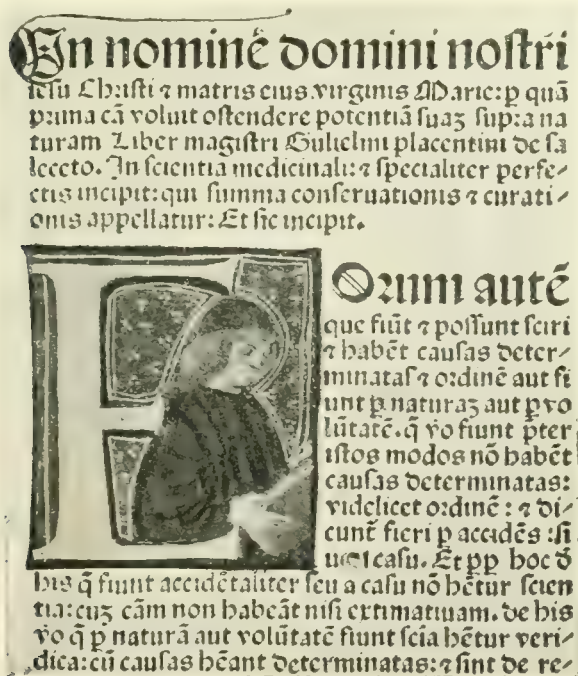 In nominē domini noſtri
ieſu Chriſti ⁊ matris eius virginis Marie: p̱ quā
prima cā voluit oſtendere potentiā ſuaꝫ ſupra na
turam Liber magiſtri Gulielmi placentini de ſa
leceto. In ſcientia medicinali: ⁊ ſpecialiter perfe⸗
ctis incipit: qui ſumma conſeruationis ⁊ curati⸗
onis appellatur: Et ſic incipit.
EOrum autē
que fiūt ⁊ poſſunt ſciri
⁊ habēt cauſas deter⸗
minataſ ⁊ ordinē aut fi
unt p̱ naturaꝫ aut p̱ vo
lūtatē. q̄ v̊o fiunt p̄ter
iſtos modos nō habēt
cauſas determinatas:
videlicet ordinē: ⁊ di⸗
cunt̄ fieri p̱ accidēs: ſi
caſu. Et pp̱ hoc d̄
his q̄ fiunt accidētaliter ſeu a caſu nō hētur ſcien
tia: cuꝫ cām non habeāt niſi extimatiuam. de his
v̊o q̄ p̱ naturā aut volūtatē fiunt ſcīa hētur veri⸗
dica: cū cauſas hēant determinatas: ⁊ ſint de re⸗